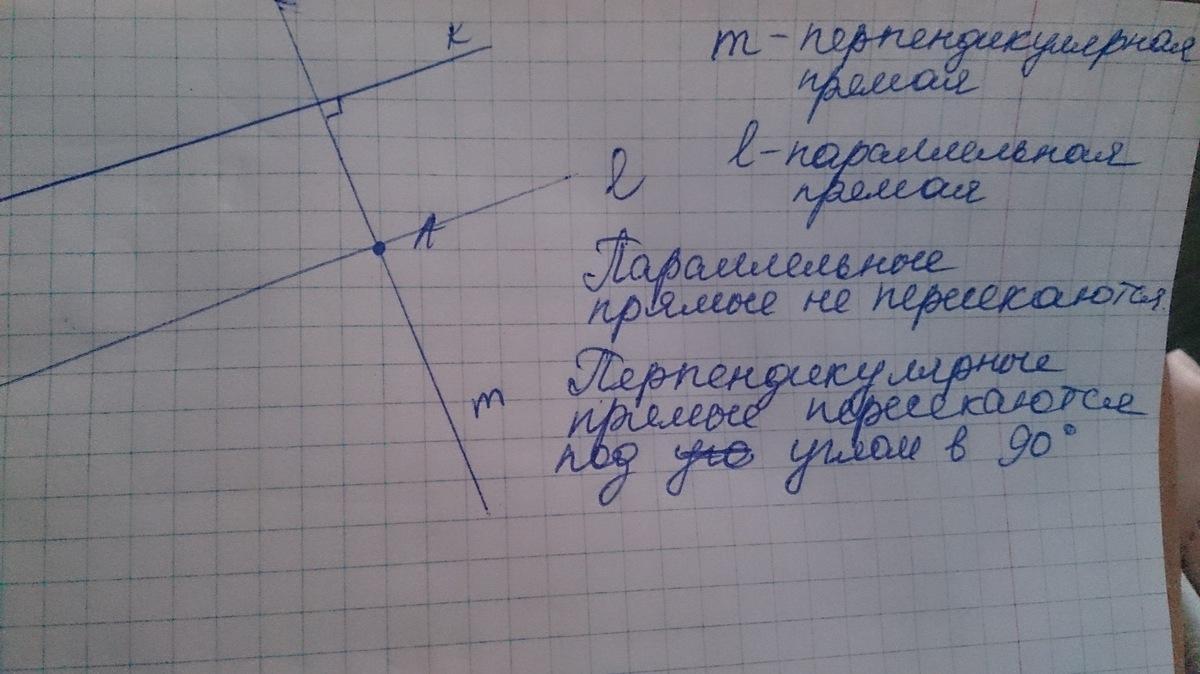 к
m - перпендикулярная
прямая
l - параллельная
прямая
l
A
Параллельные
прямые не пересекаются.
Перпендикулярные
прямые пересекаются
m
под уго углом в 90°